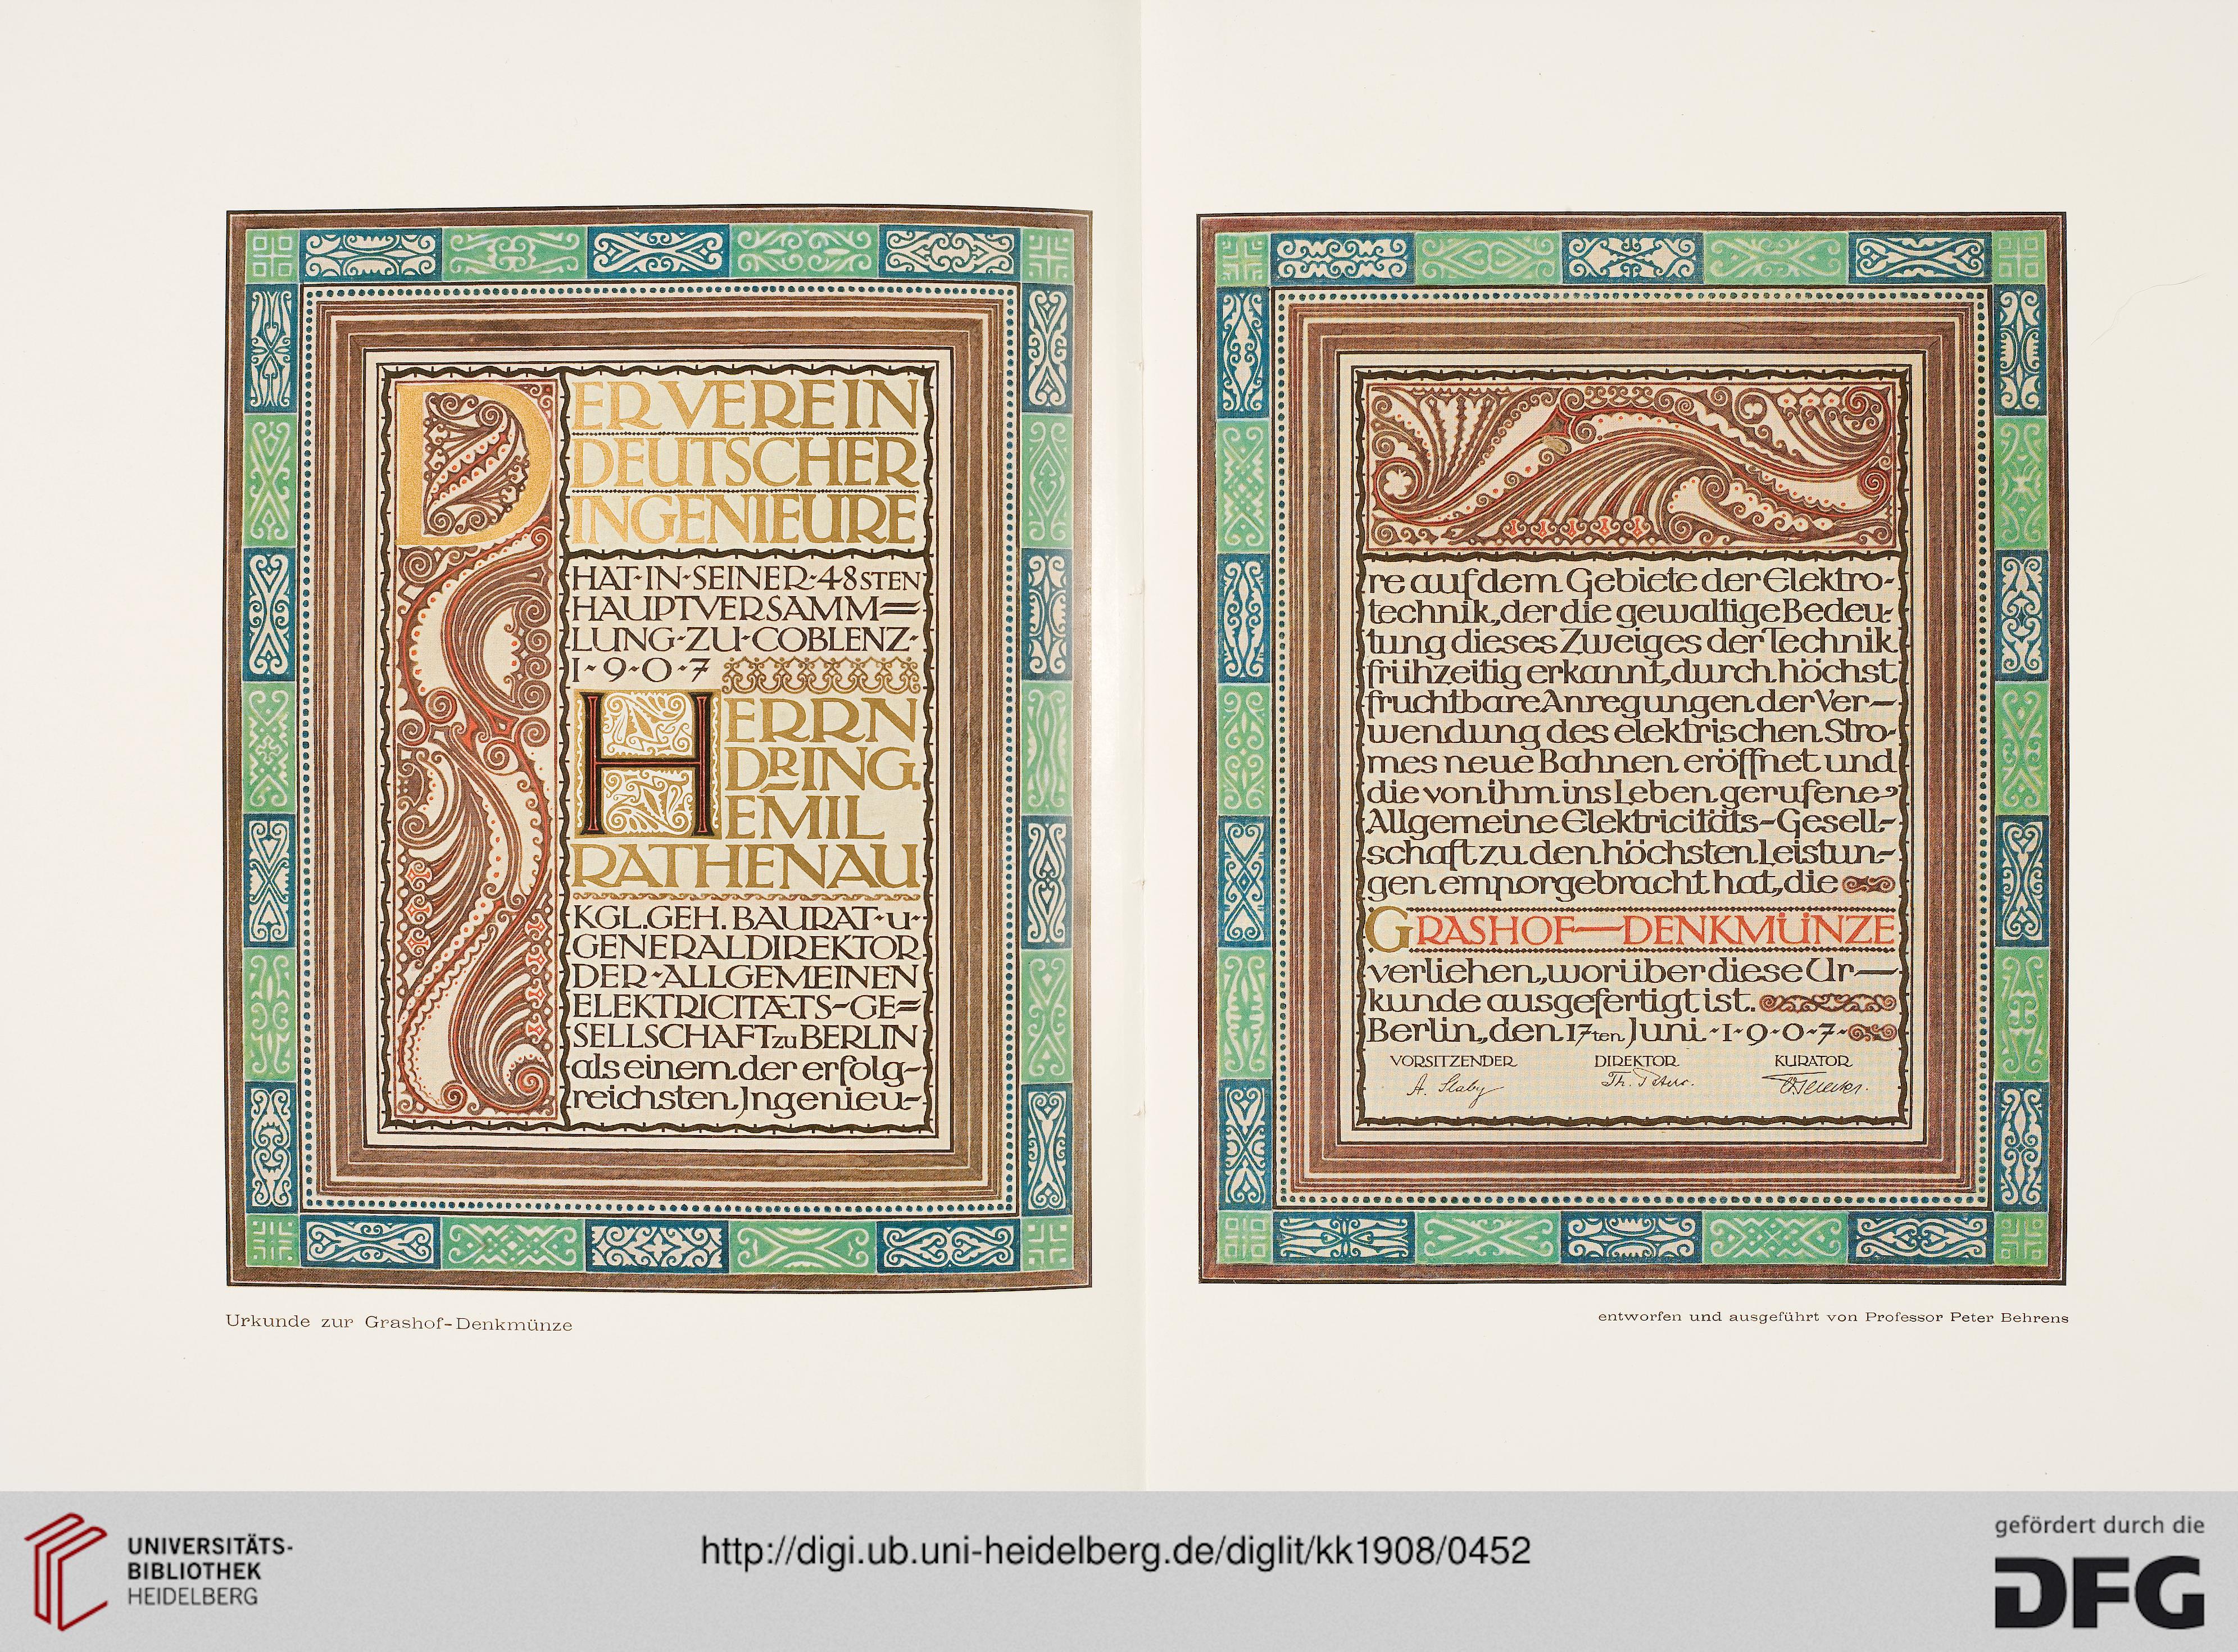 DER VEREIN
DEUTSCHER
INGENIEURE
HAT·IN·SEINER·48STEN
HAUPTVERSAMM=
LUNG·ZU·COBLENZ·
1·9·0·7
HERRN
DR ING.
EMIL
RATHENAU
KGL.GEH. BAURAT·u·
GENERALDIREKTOR
DER·ALLGEMEINEN
ELEKTRICITÆTS-GE=
SELLSCHAFT zu BERLIN
als einem der erfolg-
reichsten Ingenieu-
Urkunde zur Grashof-Denkmünze
re auf dem Gebiete der Elektro-
technik, der die gewaltige Bedeu-
tung dieses Zweiges der Technik
frühzeitig erkannt, durch höchst
fruchtbare Anregungen der Ver-
wendung des elektrischen Stro-
mes neue Bahnen eröffnet und
die von ihm ins Leben gerufene
Allgemeine Elektricitäts-Gesell-
schaft zu den höchsten Leistun-
gen emporgebracht hat, die
GRASHOF—DENKMÜNZE
verliehen, worüber diese Ur—
kunde ausgefertigt ist.
Berlin, den 17ten Juni·1·9·0·7·
VORSITZENDER DIREKTOR KURATOR
A. Slaby Th. Peters.
entworfen und ausgeführt von Professor Peter Behrens
UNIVERSITÄTS-
BIBLIOTHEK
HEIDELBERG
http://digi.ub.uni-heidelberg.de/diglit/kk1908/0452
gefördert durch die
DFG